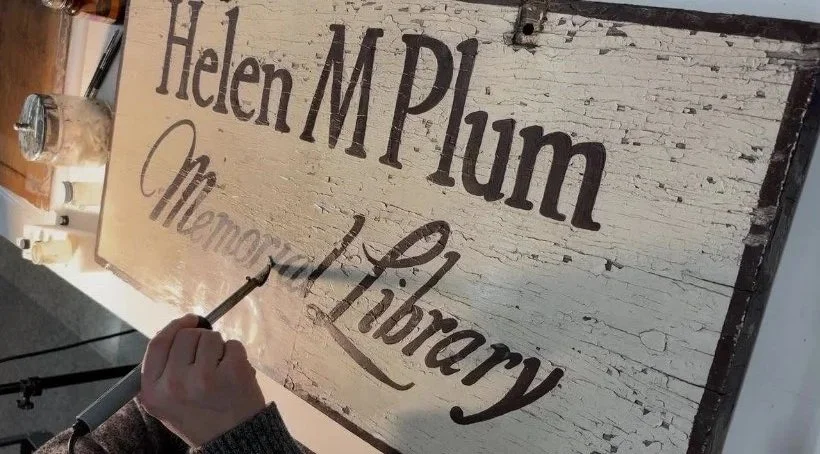 Helen M Plum
Memorial Library